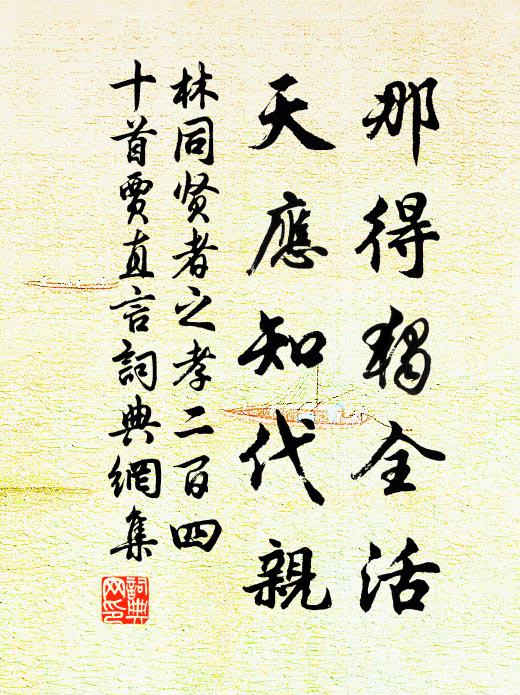 那得獨全活
天應知代親
林同贤者之孝二百四
十首賈直言詞典網集
詞典網印